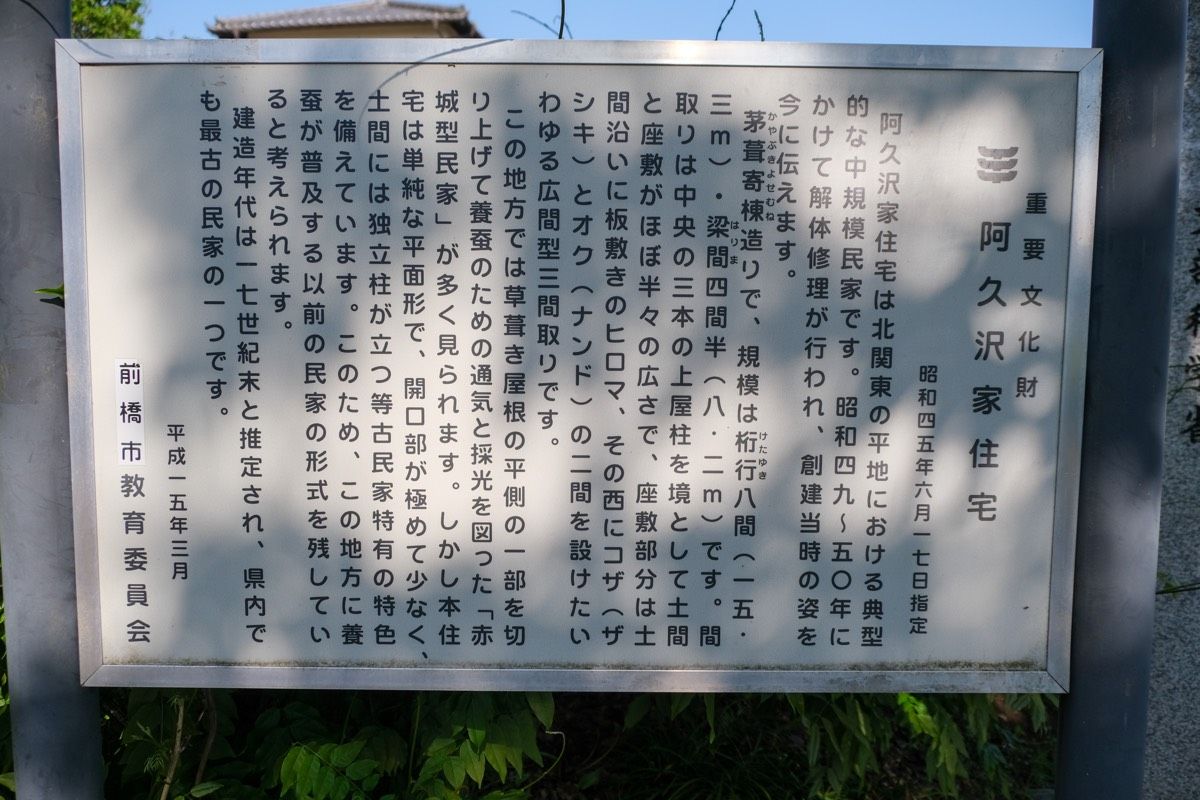 重要文化財
阿久沢家住宅
昭和四五年六月一七日指定
阿久沢家住宅は北関東の平地における典型
的な中規模民家です。昭和四九～五〇年に
かけて解体修理が行われ、創建当時の姿を
今に伝えます。
茅葺寄棟造りで、規模は桁行八間（一五．
かやぶきよせむね
けたゆき
三ｍ）・梁間四間半（八．二ｍ）です。間
はりま
取りは中央の三本の上屋柱を境として土間
と座敷がほぼ半々の広さで、座敷部分は土
間沿いに板敷きのヒロマ、その西にコザ（ザ
シキ）とオク（ナンド）の二間を設けたい
わゆる広間型三間取りです。
この地方では草葺き屋根の平側の一部を切
り上げて養蚕のための通気と採光を図った「赤
城型民家」が多く見られます。しかし本住
宅は単純な平面形で、開口部が極めて少なく、
土間には独立柱が立つ等古民家特有の特色
を備えています。このため、この地方に養
蚕が普及する以前の民家の形式を残してい
ると考えられます。
建造年代は一七世紀末と推定され、県内で
も最古の民家の一つです。
平成一五年三月
前橋市教育委員会